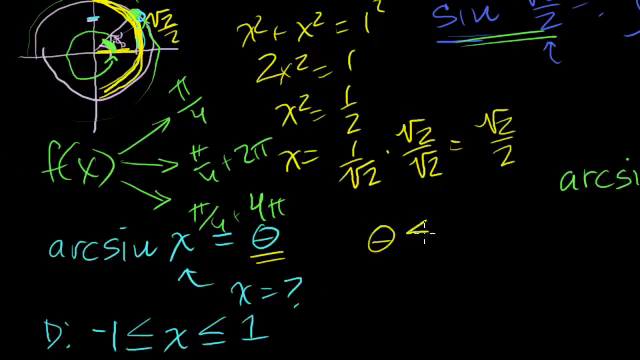 √2/2
x² + x² = 1²
2x² = 1
x² = 1/2
x = 1/√2 · √2/√2 = √2/2
sin √2/2 =
f(x)
π/4
π/4 + 2π
π/4 + 4π
arcsi
arcsin x = θ
θ <
x = ?
D: -1 ≤ x ≤ 1